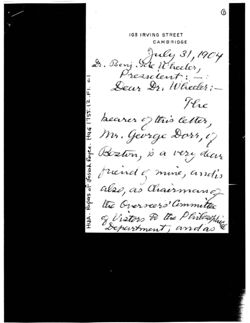 103 IRVING STREET
CAMBRIDGE
July 31, 1904
Dr. Benj. Ide Wheeler,
President:—
Dear Dr. Wheeler:—
The
bearer of this letter,
Mr. George Dorr, of
Boston, is a very dear
friend of mine, and is
also, as Chairman of
the Overseers' Committee
of Visitors to the Philosophical
Department, and as